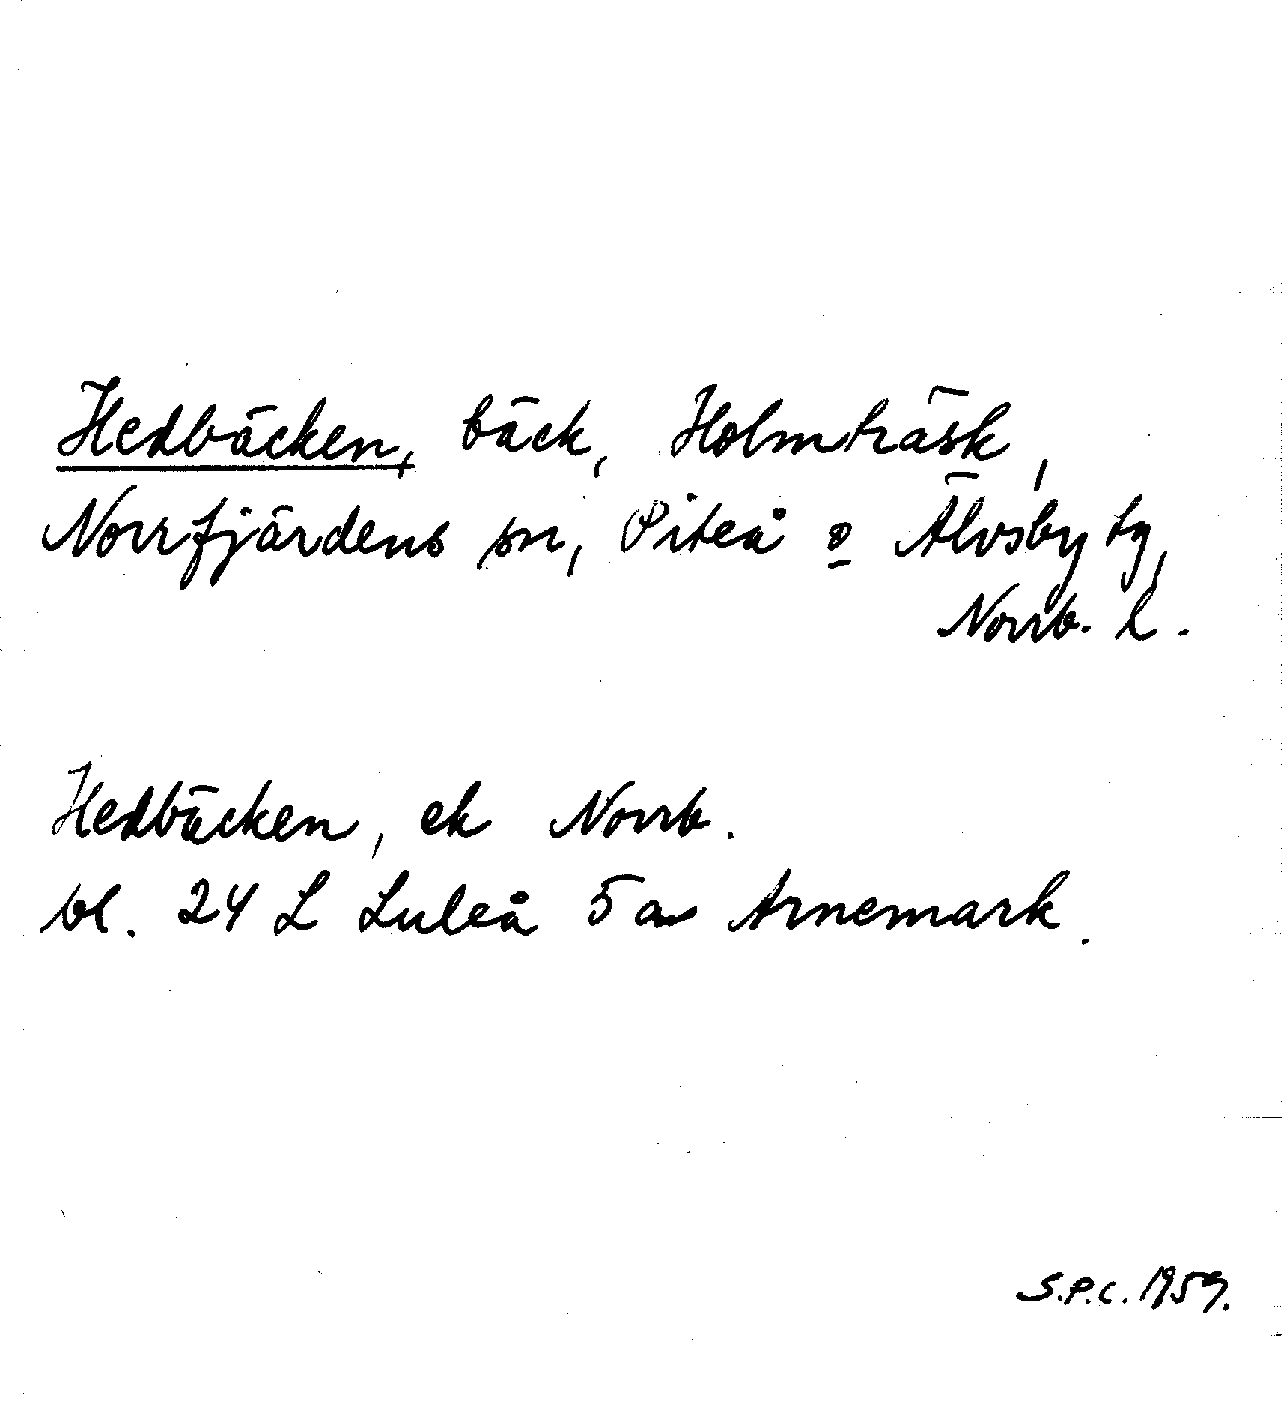 Hedbäcken, bäck, Holmträsk,
Norrfjärdens sn, Piteå o Älvsby tg,
Norrb. l.
Hedbäcken, ek Norrb.
bl. 24 L Luleå 5 a Arnemark.
S.P.C. 1959.